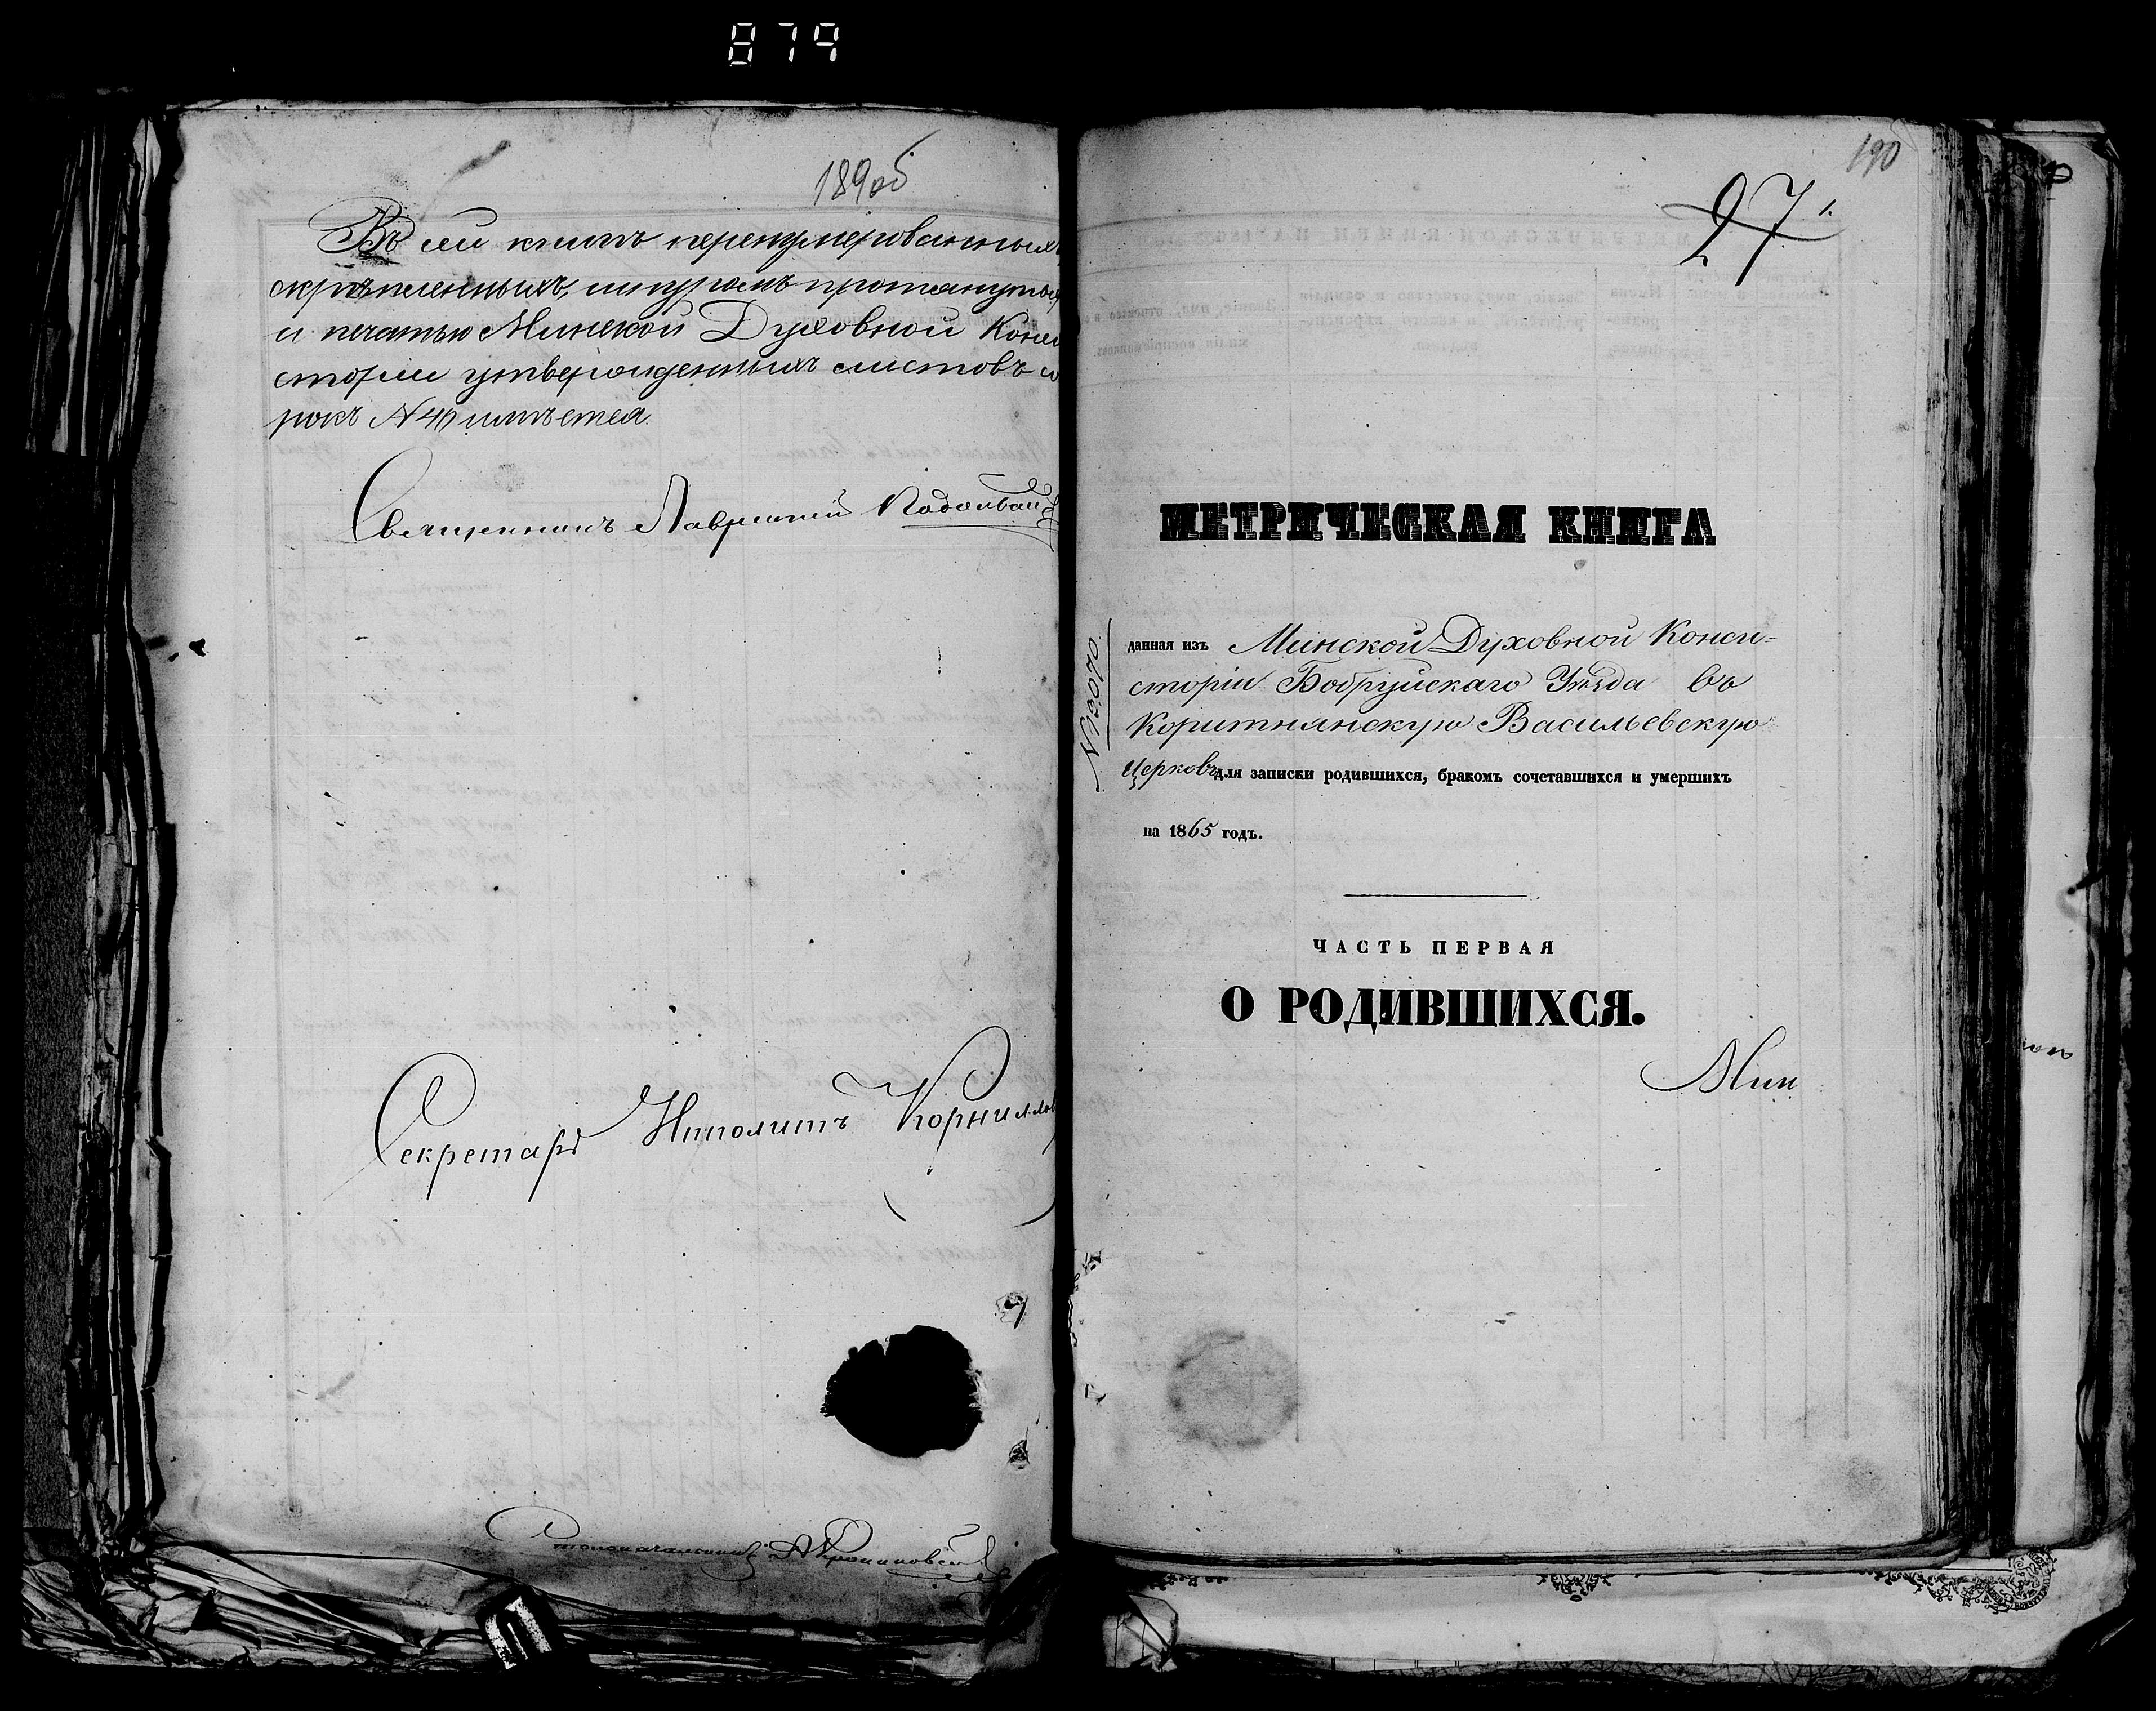 879
189об
Въ сей книгѣ перенумерованныхъ
скрѣпленныхъ, шнуромъ протянутых
и печатью Минской Духовной Конси
сторіи утвержденныхъ листовъ со
рокъ N 40 имѣется.
Священникъ Лаврентій
Секретарь Ипполитъ Корнилов
Столоначальникъ
190
27
1.
МЕТРИЧЕСКАЯ КНИГА
данная изъ Минской Духовной Конси-
сторіи Бобруйскаго Уѣзда въ
Коритнянскую Васильевскую
Церковь для записки родившихся, бракомъ сочетавшихся и умершихъ
на 1865 годъ.
N 13070
ЧАСТЬ ПЕРВАЯ
О РОДИВШИХСЯ.
Мин